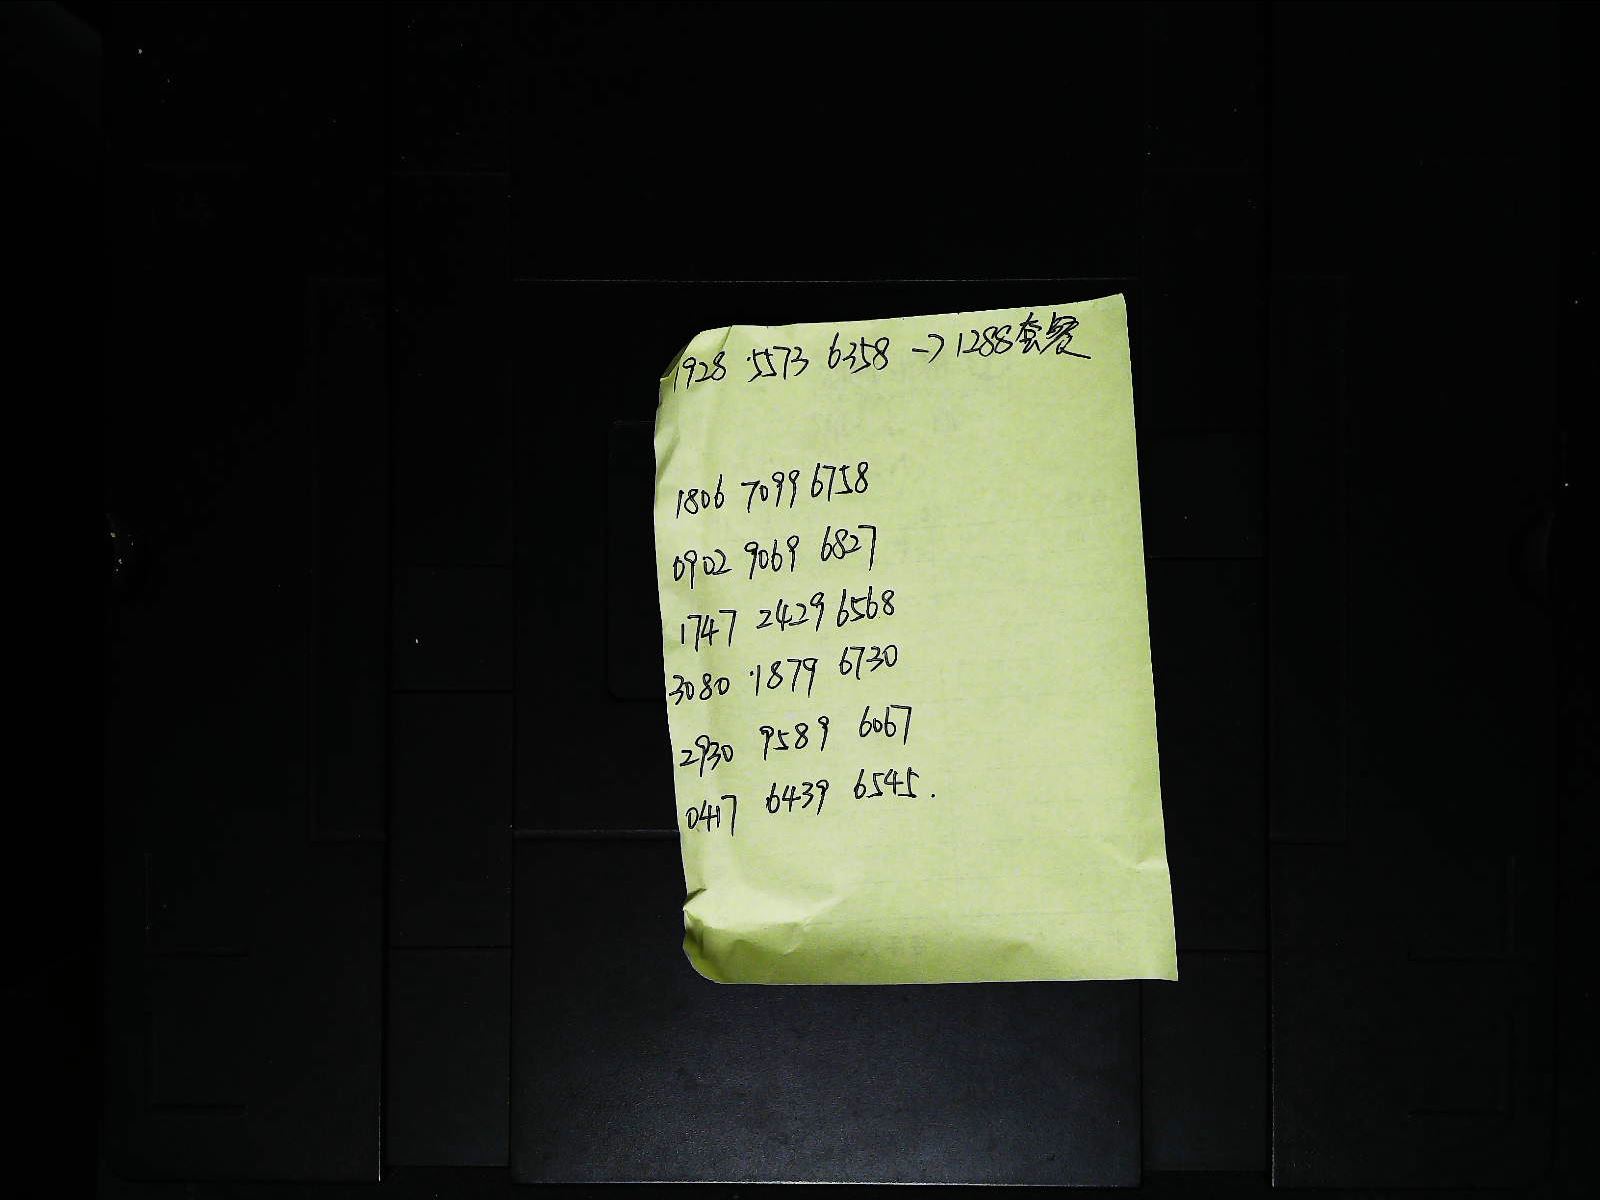 1928 5573 6358 → 1288套餐
1806 7099 6758
0902 9069 6827
1747 2429 6568
3080 1879 6730
2930 9589 6067
0417 6439 6545.